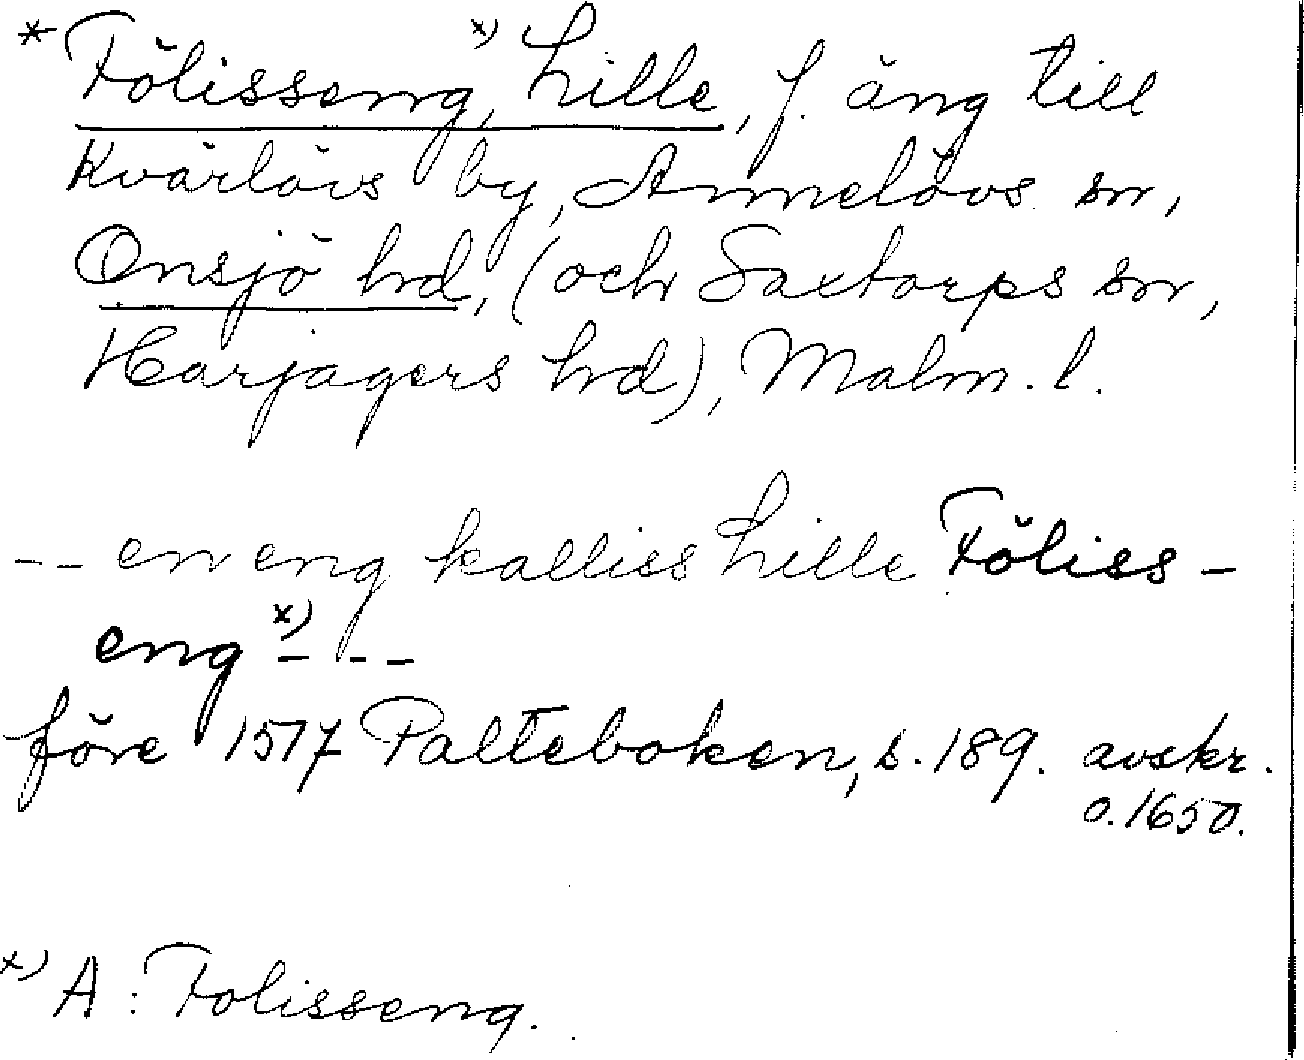 * Fölisseng, x) Lille, f. äng till
Kvärlövs by, Annelövs sn,
Onsjö hd, (och Saxtorps sn,
Harjagers hd), Malm. l.
-- en eng kallies Lille Föliss-
eng x) - - -
före 1517 Palteboken, s. 189. avskr.
o. 1650.
x) A: Folisseng.